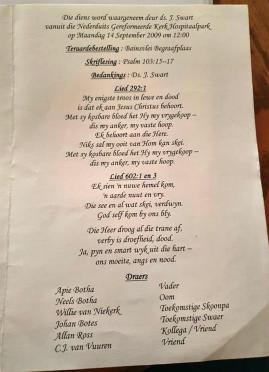 Die diens word waargeneem deur ds. J. Swart
vanuit die Nederduits Gereformeerde Kerk Hospitaalpark
op Maandag 14 September 2009 om 12:00
Teraardebestelling : Bainsvlei Begraafplaas
Skriflesing : Psalm 103:15-17
Bedankings : Ds. J. Swart
Lied 292:1
My enigste troos in lewe en dood
is dat ek aan Jesus Christus behoort.
Met sy kosbare bloed het Hy my vrygekoop –
dis my anker, my vaste hoop.
Ek behoort aan die Here.
Niks sal my ooit van Hom kan skei.
Met sy kosbare bloed het Hy my vrygekoop –
dis my anker, my vaste hoop.
Lied 602:1 en 3
Ek sien 'n nuwe hemel kom,
'n aarde nuut en vry.
Die see en al wat skei, verdwyn.
God self kom by ons bly.
Die Heer droog al die trane af,
verby is droefheid, dood.
Ja, pyn en smart wyk uit die hart –
ons moeite, angs en nood.
Draers
Apie Botha Vader
Neels Botha Oom
Willie van Niekerk Toekomstige Skoonpa
Johan Botes Toekomstige Swaer
Allan Ross Kollega / Vriend
C.J. van Vuuren Vriend